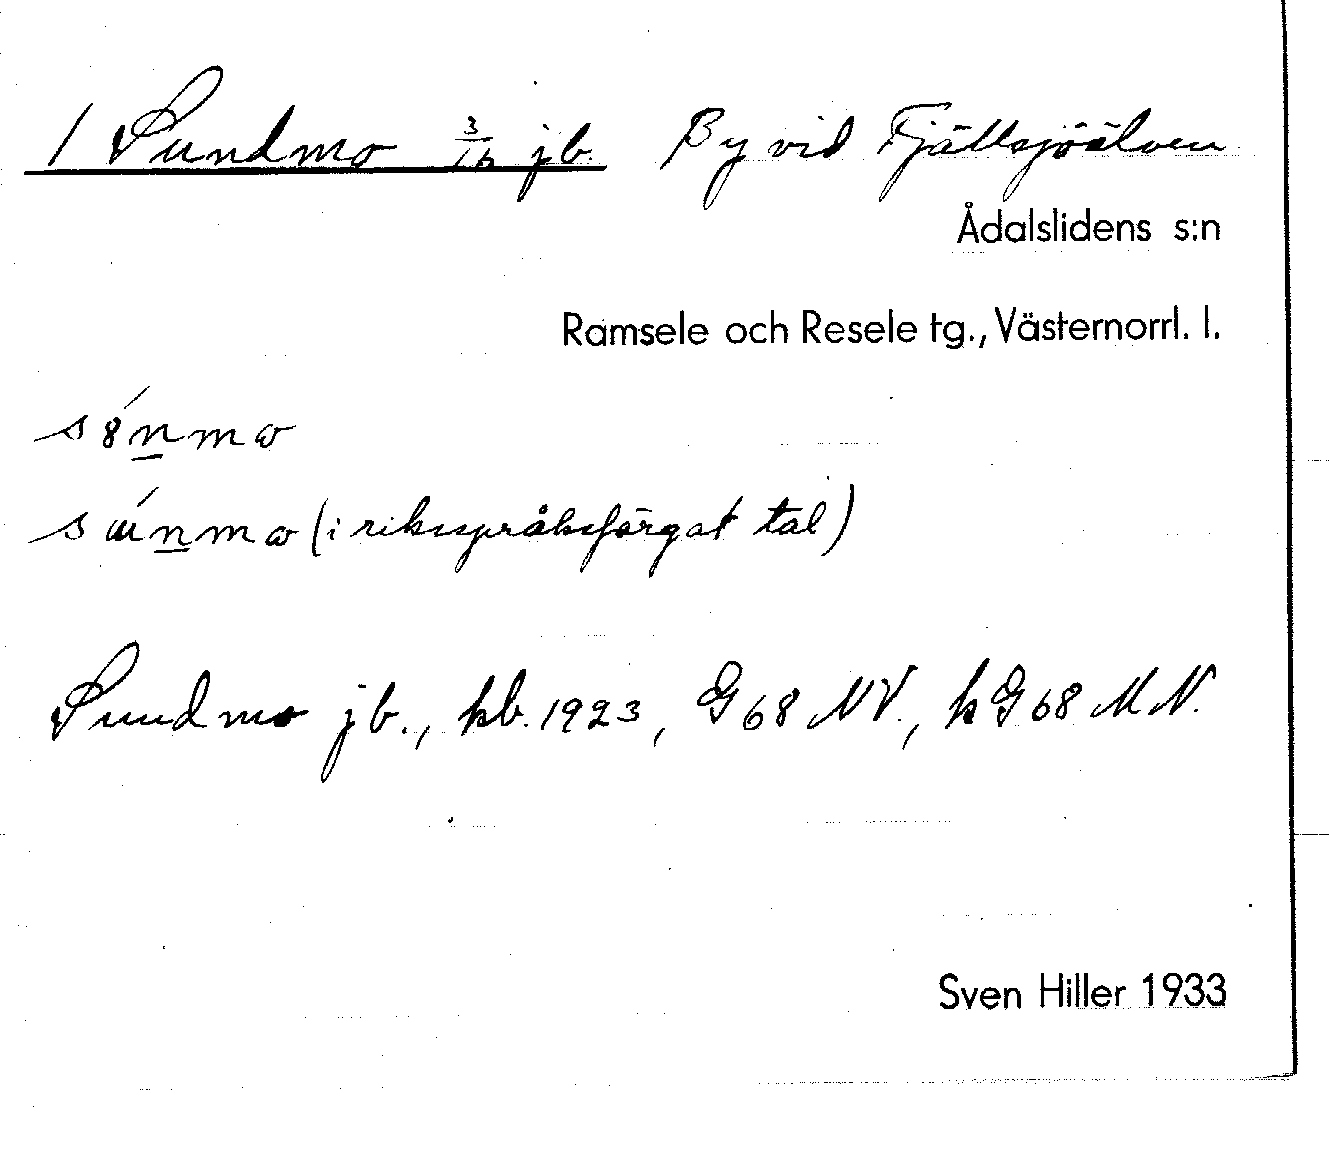 1 Sundmo 3/16 jb. By vid Fjällsjöälven
Ådalslidens s:n
Ramsele och Resele tg., Västernorrl. l.
(i riksspråksfärgat tal)
Sundmo jb., kb. 1923, G 68 NV., hG 68 M N.
Sven Hiller 1933